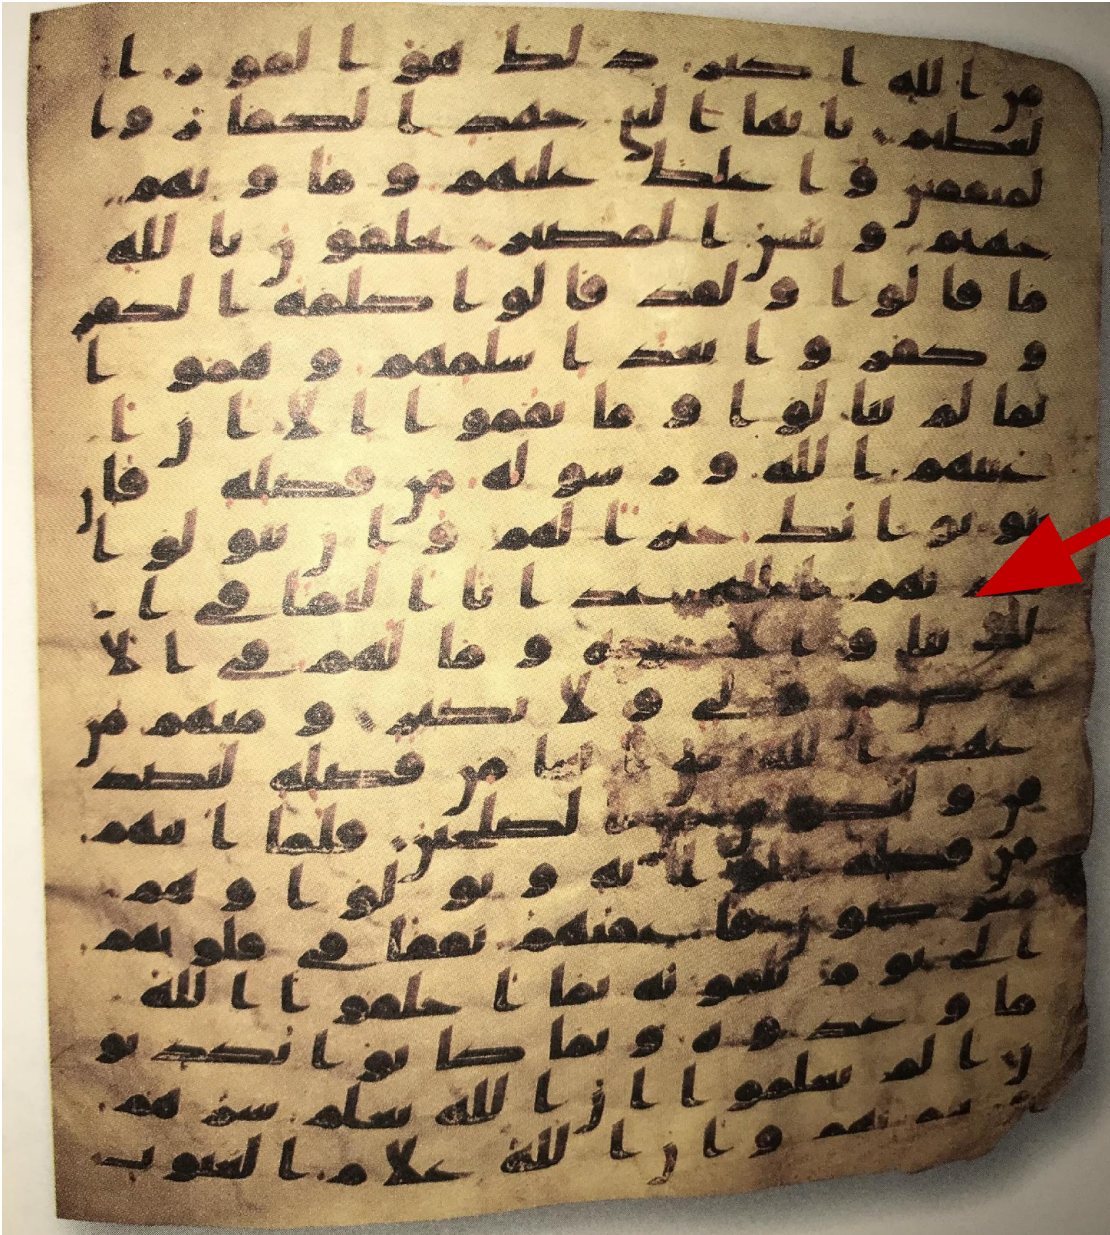 من الله اكبر ذلك هو الفوز ا
لعظيم يايها النبي جهد الكفار وا
لمنفقين واغلظ عليهم وماويهم
جهنم وبئس المصير يحلفون بالله
ما قالوا ولقد قالوا كلمة الكفر
وكفروا بعد اسلمهم وهموا
بما لم ينالوا وما نقموا الا ان ا
غنيهم الله ورسوله من فضله فان
يتوبوا يك خيرا لهم وان يتولوا
يعذبهم الله عذابا اليما في ا
لدنيا والاخرة وما لهم في الا
رض من ولي ولا نصير ومنهم من
عهد الله لئن اتينا من فضله لنصد
قن ولنكونن من الصلحين فلما اتيهم
من فضله بخلوا به وتولوا وهم
معرضون فاعقبهم نفقا في قلوبهم
الى يوم يلقونه بما اخلفوا الله
ما وعدوه وبما كانوا يكذبو
ن الم يعلموا ان الله يعلم سرهم
ونجويهم وان الله علام الغيوب